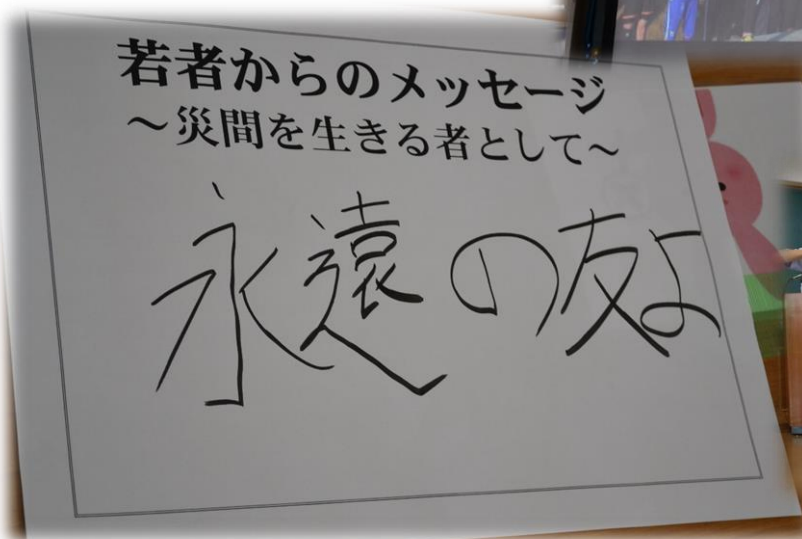 若者からのメッセージ
～災間を生きる者として～
永遠の友よ